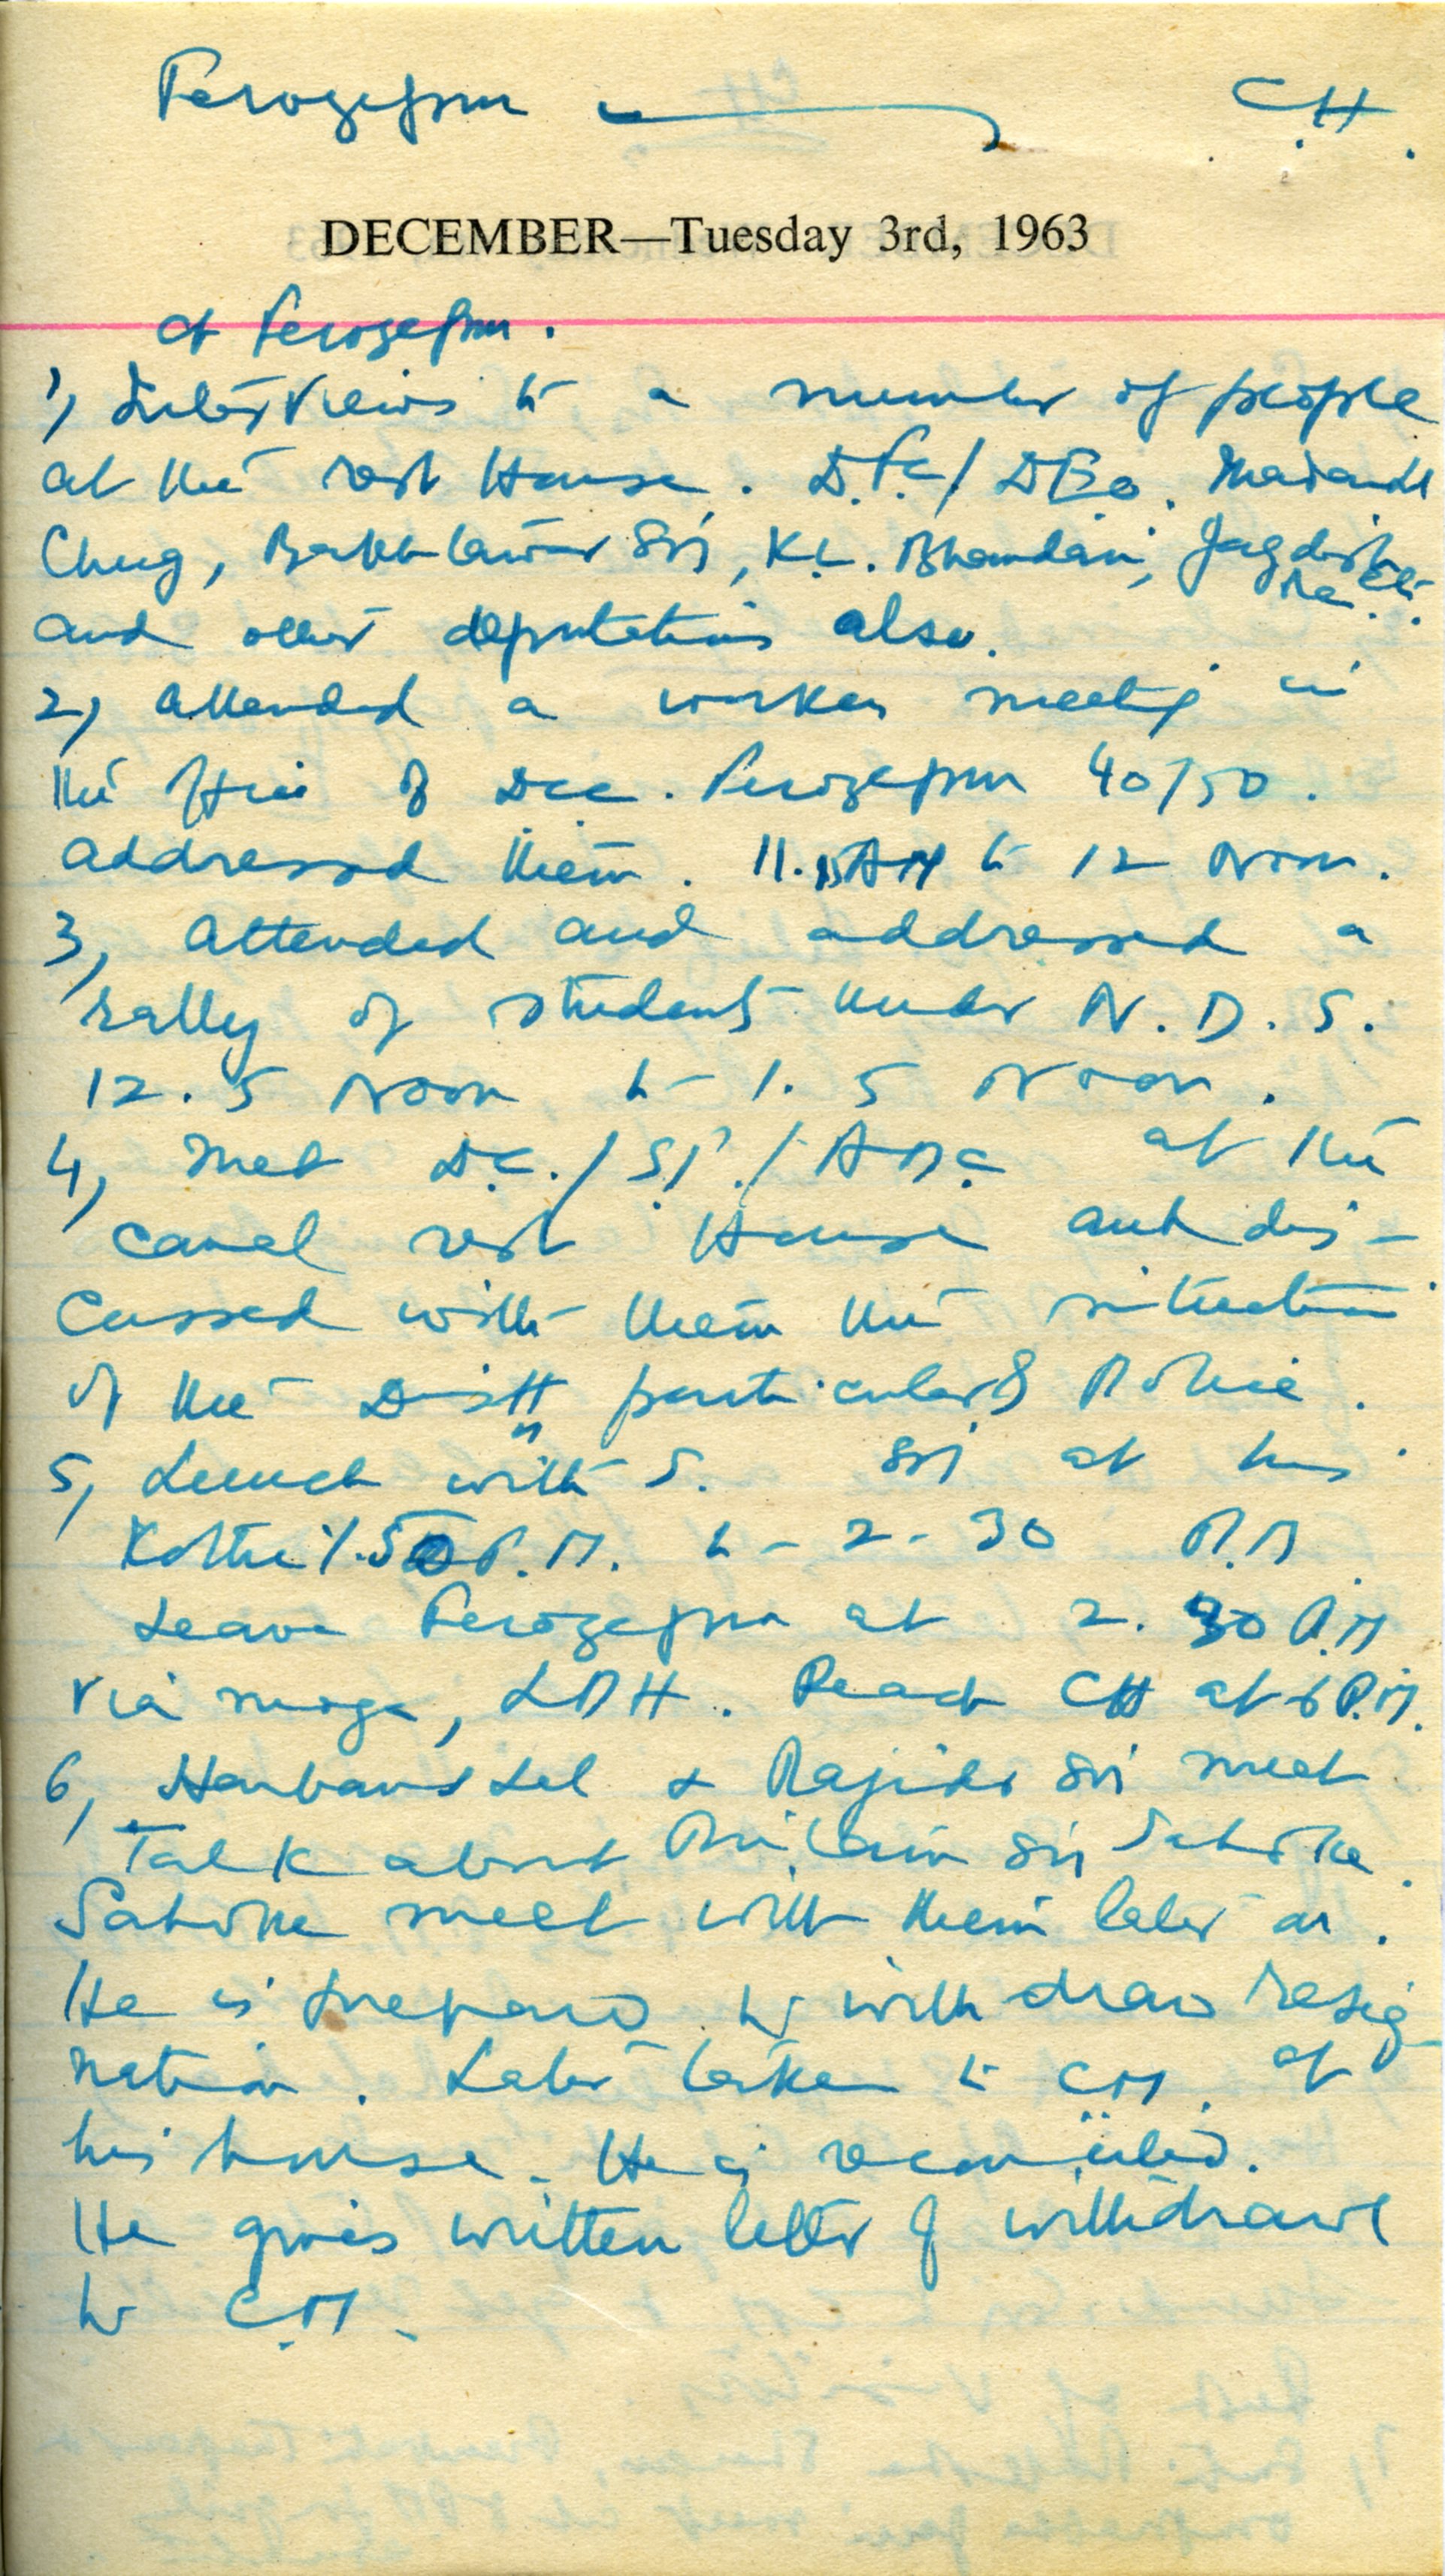 Ferozepur — C.H.
DECEMBER—Tuesday 3rd, 1963
at Ferozepur.
1) Interviews to a number of people
at the rest House. D.C./
Chug, Singh, K.L. Bhandari, Jagdish
and other deputations also.
2) Attended a workers meeting in
the office of D.C.C. Ferozepur 40/50.
addressed them. 11. AM to 12 Noon.
3, Attended and addressed a
rally of students under N.D.S.
12.5 Noon to 1.5 Noon.
4, Met D.C./S.P./ at the
Canal rest House and dis-
cussed with them the situation
of the Distt particularly Police.
5, Lunch with S. at his
Kothi 1.50 P.M. to 2-30 P.M.
Leave Ferozepur at 2.30 P.M
via moga, LDH. Reach CH at 6 P.M.
6, Harbans Lal & meet
Talk about
meet with them later on.
He is prepared to withdraw resig-
nation. Later taken to CM. at
his house. He is reconciled.
He gives written letter of withdrawl
to C.M.